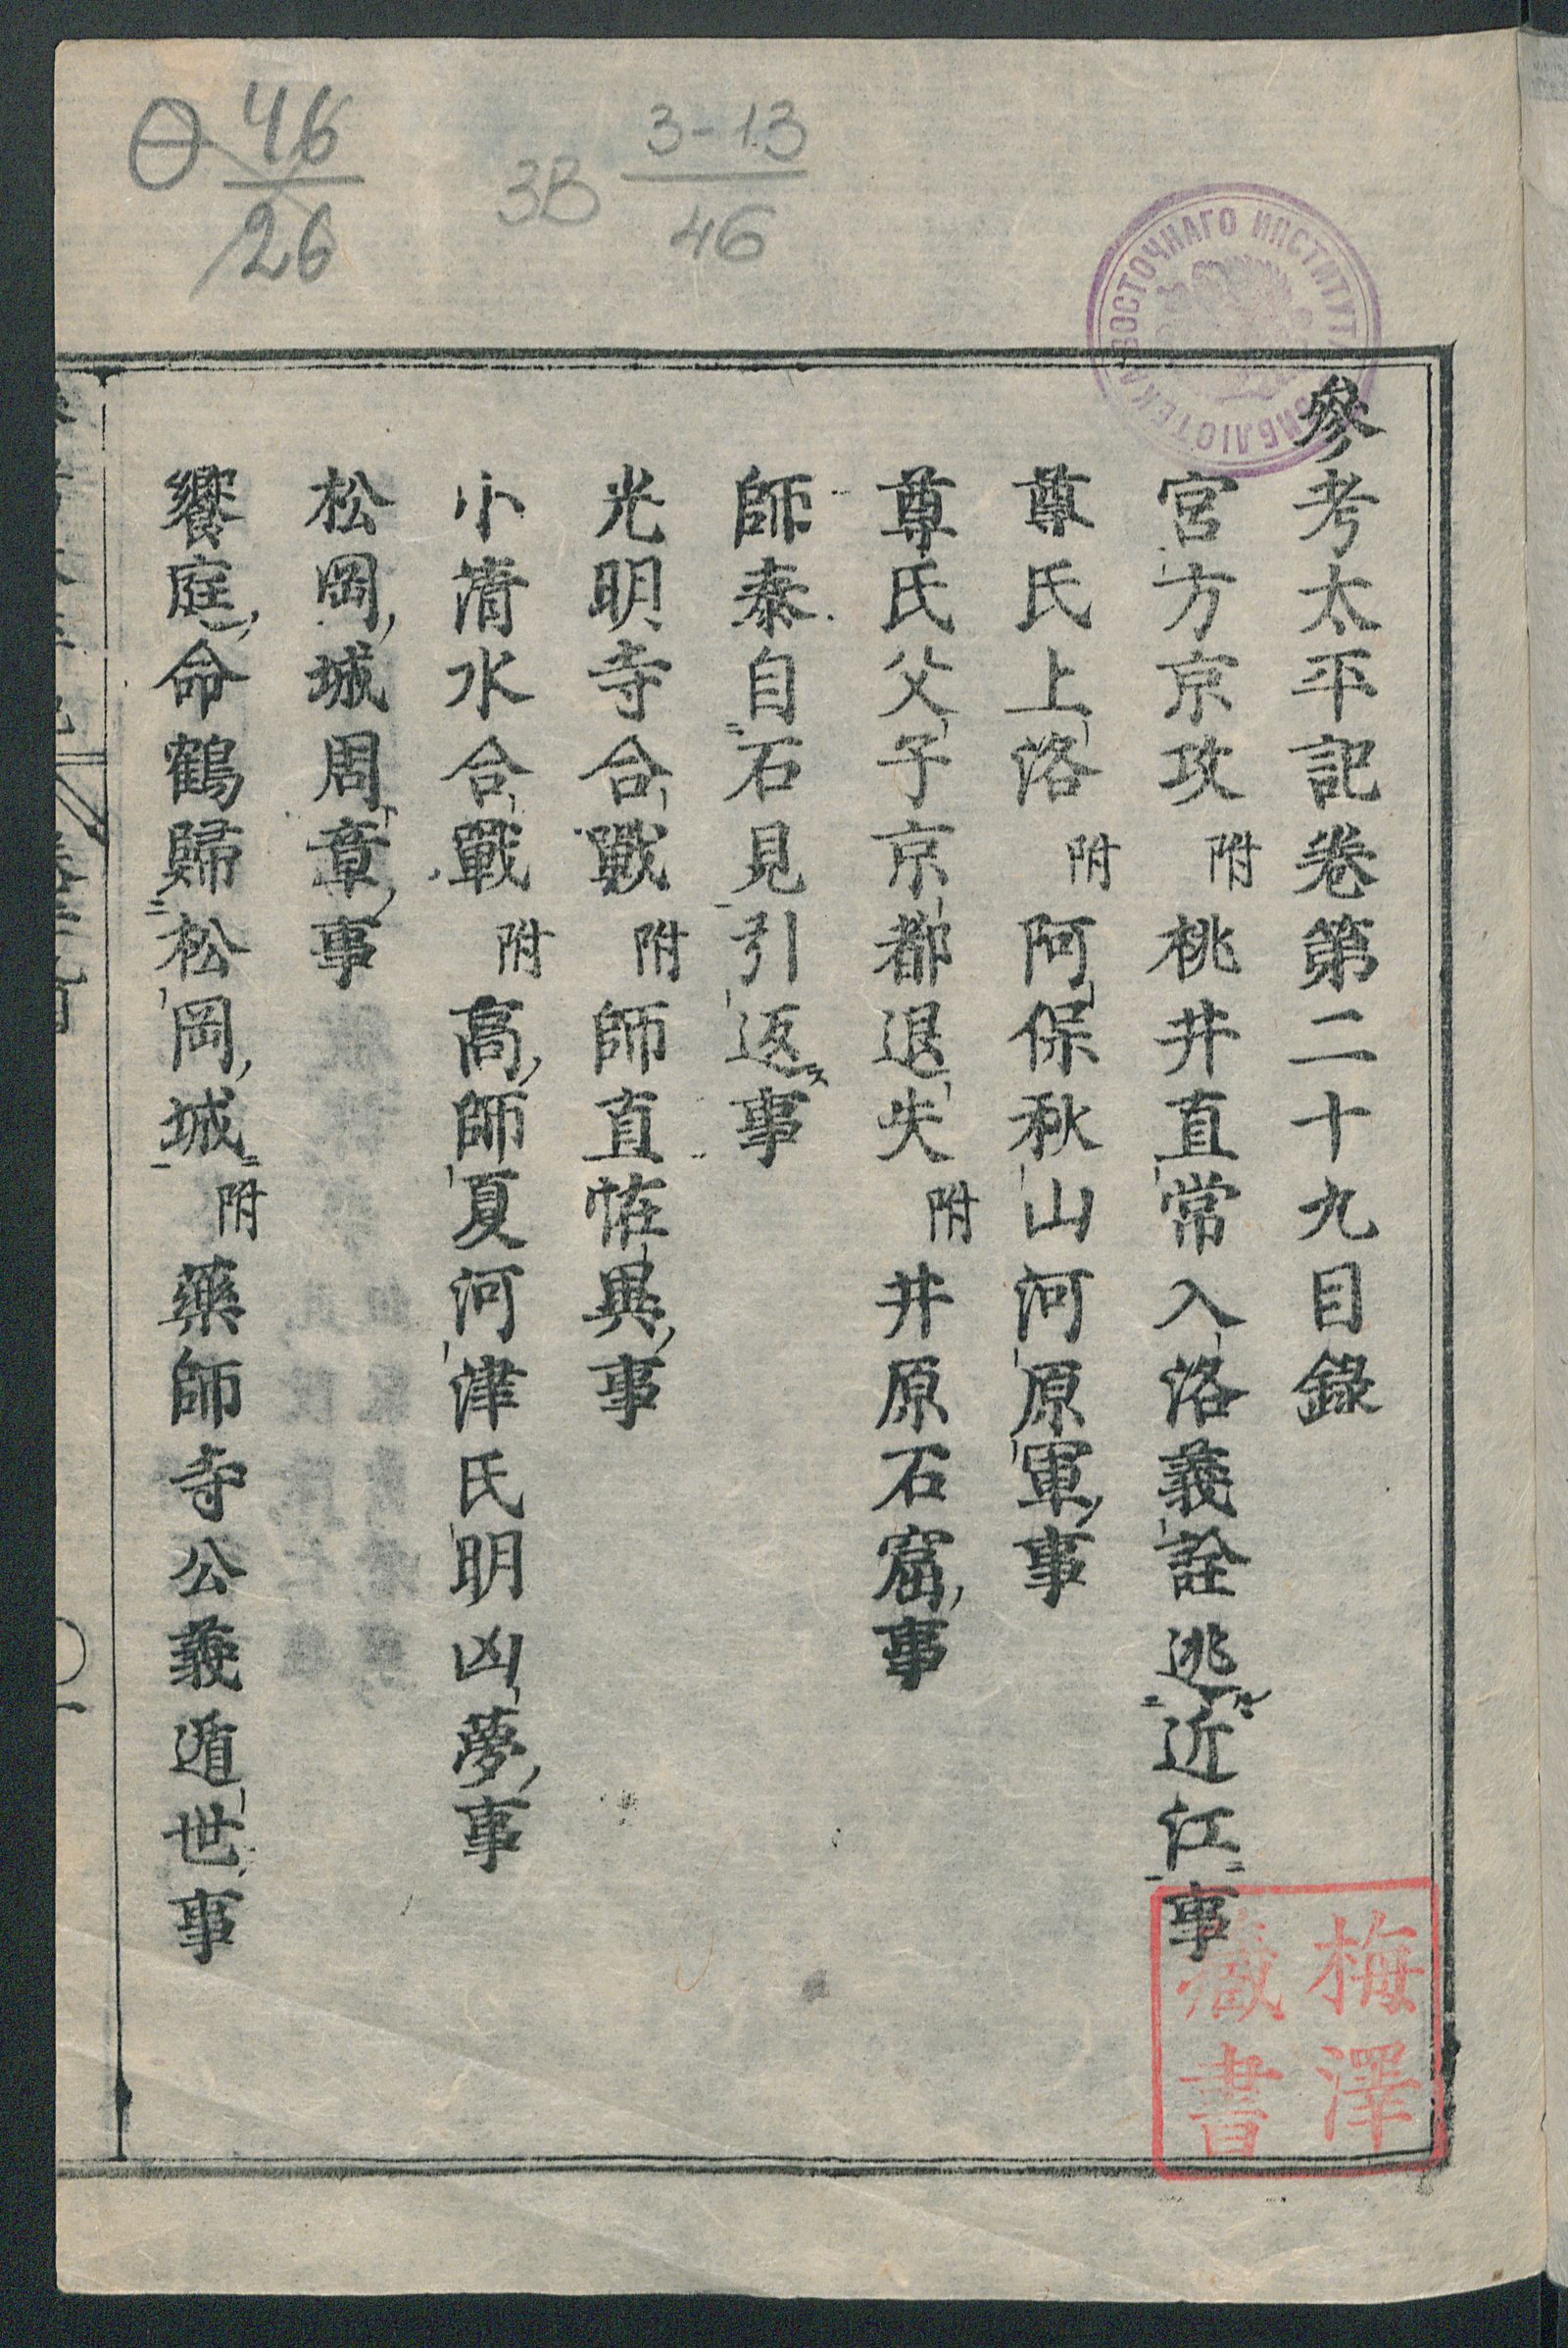 46
26
3B 3-13
46
БИБЛІОТЕКА ВОСТОЧНАГО ИНСТИТУТА
參考太平記卷第二十九目錄
宮方京攻附桃井直常入洛義詮逃近江事
尊氏上洛附阿保秋山河原軍事
尊氏父子京都退失附井原石窟事
師泰自石見引返事
光明寺合戰附師直恠異事
小清水合戰附高師夏河津氏明凶夢事
松岡城周章事
饗庭命鶴歸松岡城附藥師寺公義遁世事
梅澤
藏書